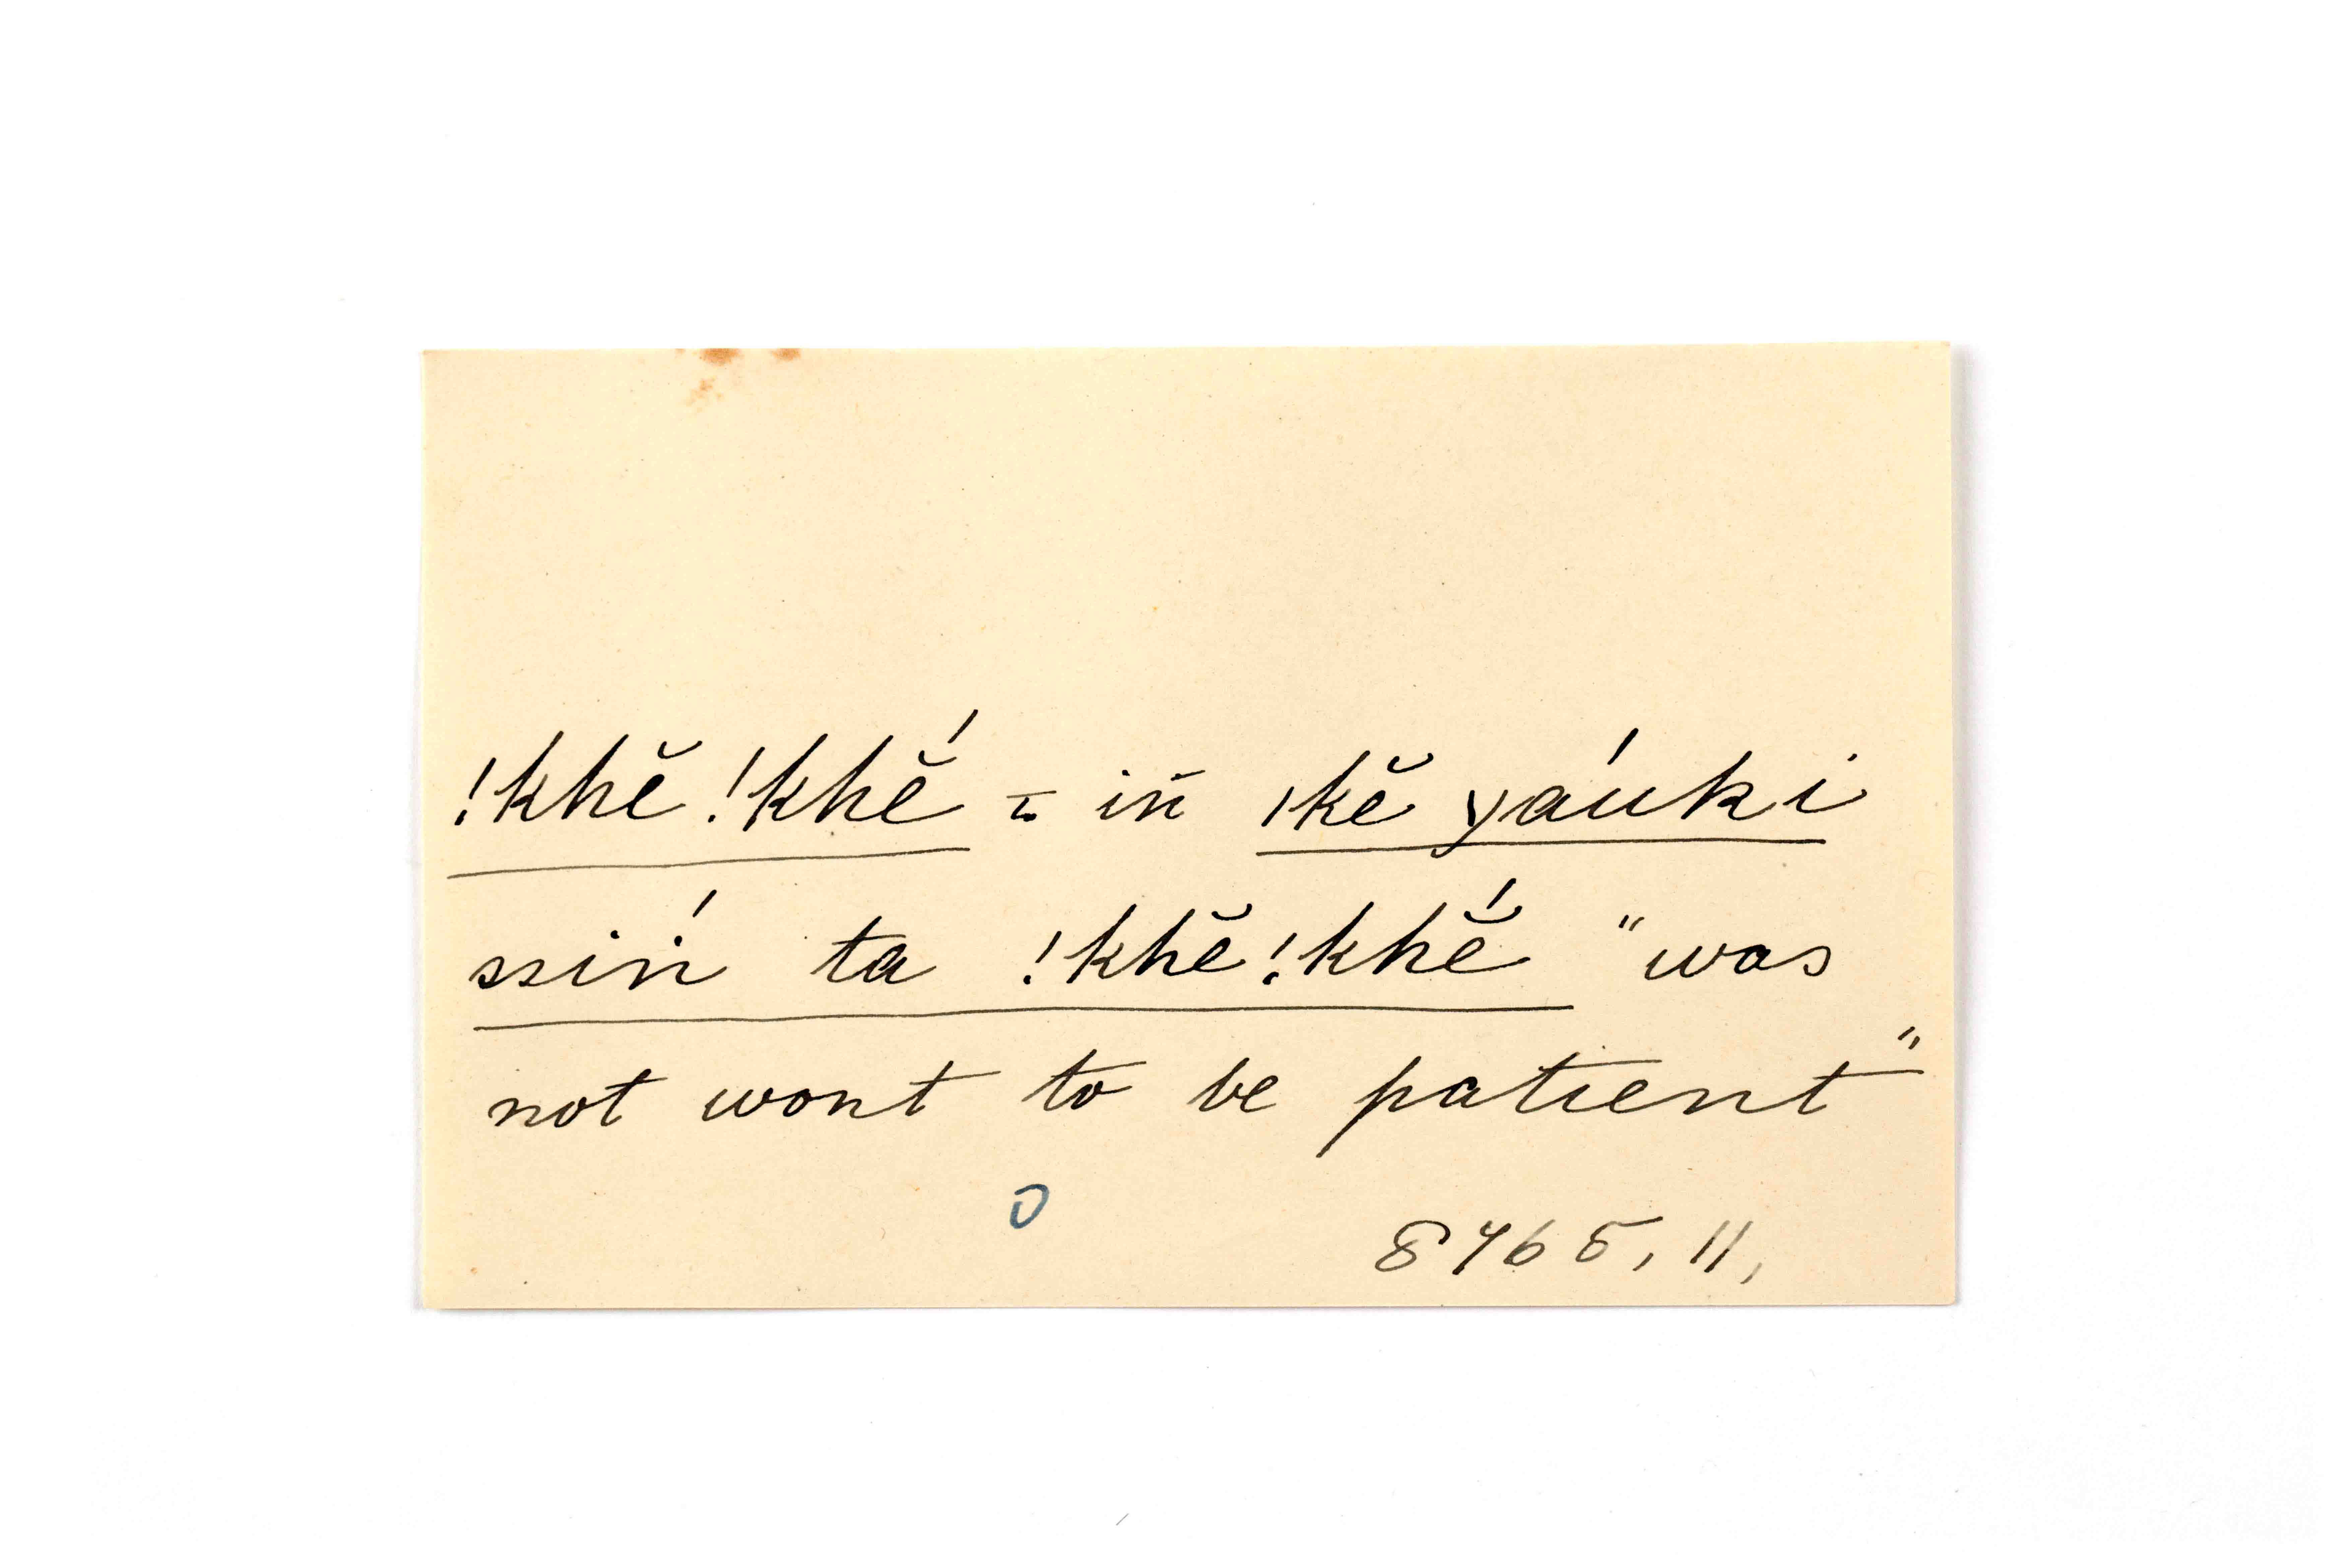 !khĕ !khĕ́ = in̄ ıkĕ yáuki
ssiń ta !khĕ!khĕ́ "was
not wont to be patient"
O
8465, 11,